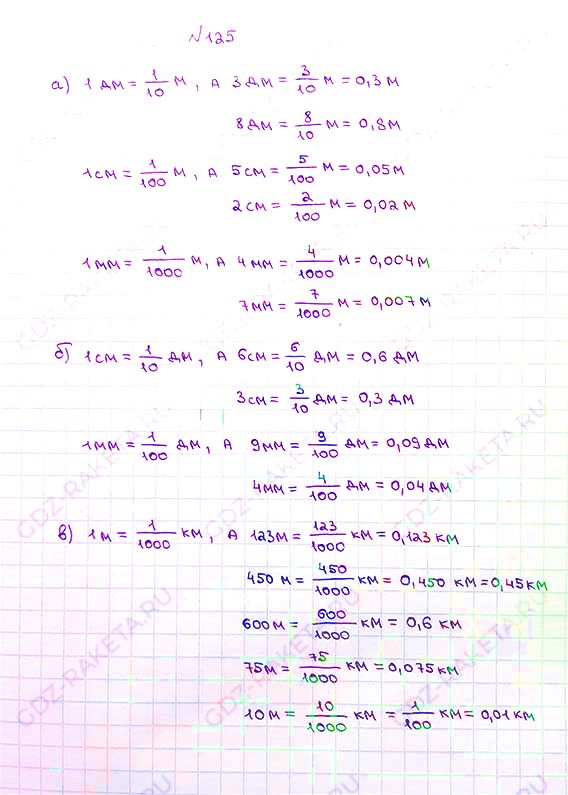 №125
а) 1 дм = 1/10 м, а 3 дм = 3/10 м = 0,3 м
8 дм = 8/10 м = 0,8 м
1 см = 1/100 м, а 5 см = 5/100 м = 0,05 м
2 см = 2/100 м = 0,02 м
1 мм = 1/1000 м, а 4 мм = 4/1000 м = 0,004 м
7 мм = 7/1000 м = 0,007 м
б) 1 см = 1/10 дм, а 6 см = 6/10 дм = 0,6 дм
3 см = 3/10 дм = 0,3 дм
1 мм = 1/100 дм, а 9 мм = 9/100 дм = 0,09 дм
4 мм = 4/100 дм = 0,04 дм
в) 1 м = 1/1000 км, а 123 м = 123/1000 км = 0,123 км
450 м = 450/1000 км = 0,450 км = 0,45 км
600 м = 600/1000 км = 0,6 км
75 м = 75/1000 км = 0,075 км
10 м = 10/1000 км = 1/100 км = 0,01 км
GDZ-RAKETA.RU